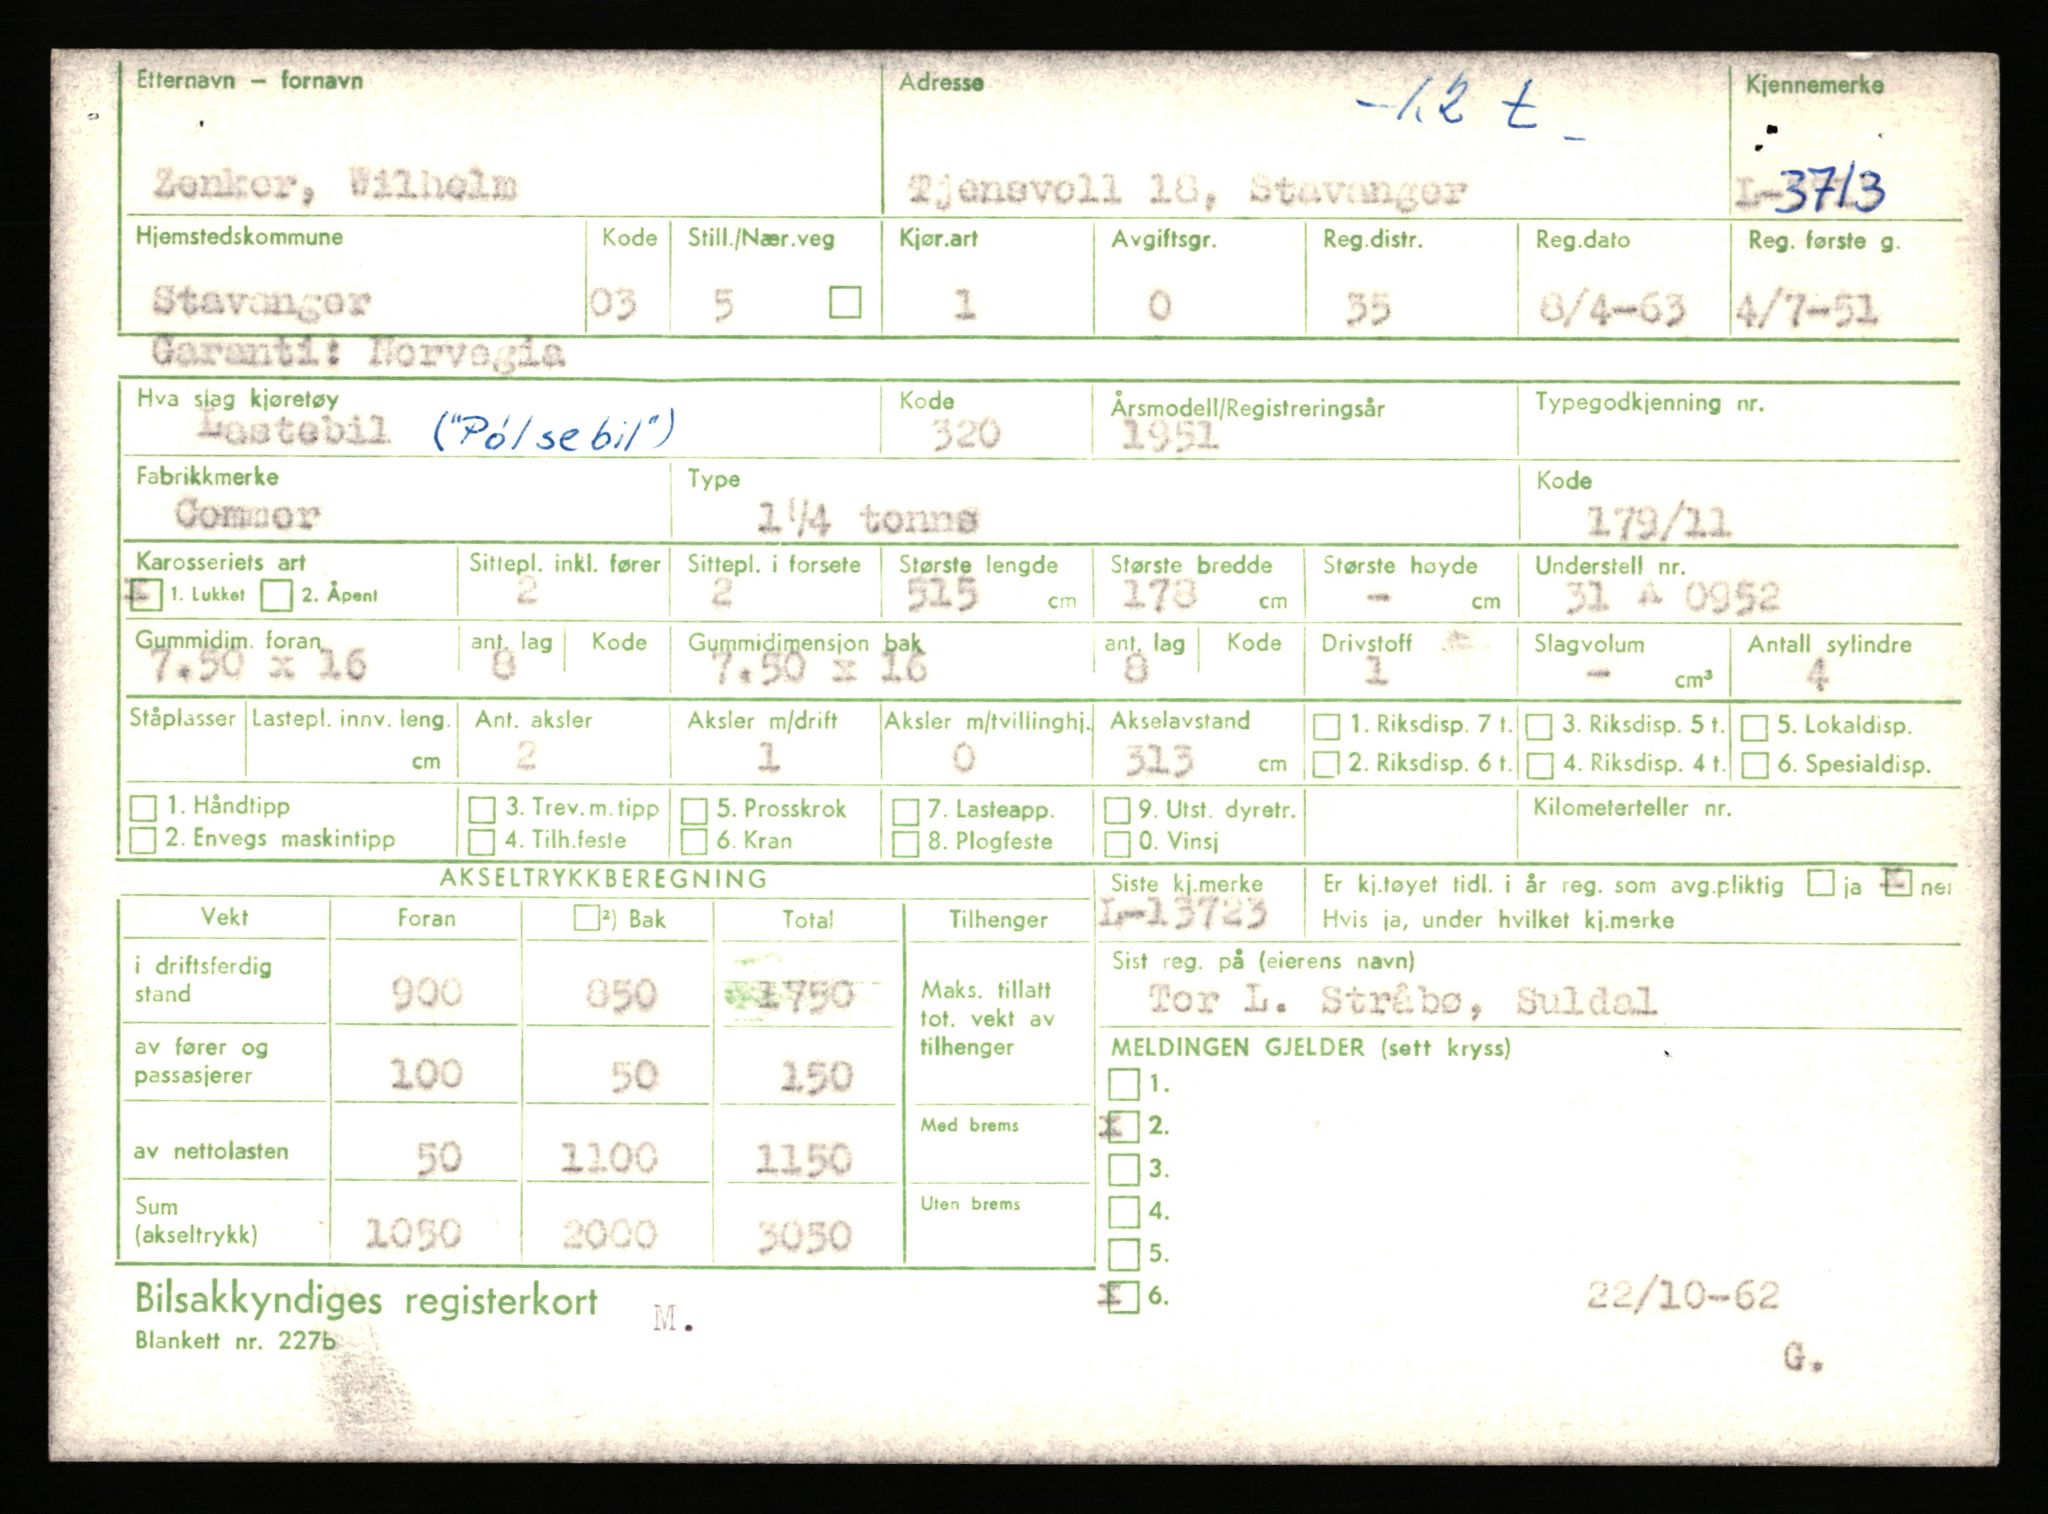 Etternavn – fornavn Adresse -1.2 t - Kjennemerke
Zenker, Wilhelm Tjensvoll 18, Stavanger L-3713
Hjemstedskommune Kode Still./Nær.veg Kjør.art Avgiftsgr. Reg.distr. Reg.dato Reg. første g.
Stavanger 03 5 1 0 35 8/4-63 4/7-51
Garanti: Norvegia
Hva slag kjøretøy Kode Årsmodell/Registreringsår Typegodkjenning nr.
Lastebil ("Pólsebil") 320 1951
Fabrikkmerke Type Kode
Commer 1 1/4 tonns 179/11
Karosseriets art Sittepl. inkl. fører Sittepl. i forsete Største lengde Største bredde Største høyde Understell nr.
X 1. Lukket 2. Åpent 2 2 515 cm 178 cm - cm 31 A 0952
Gummidim. foran ant. lag Kode Gummidimensjon bak ant. lag Kode Drivstoff Slagvolum Antall sylindre
7.50 x 16 8 7.50 x 16 8 1 - cm³ 4
Ståplasser Lastepl. innv. leng. Ant. aksler Aksler m/drift Aksler m/tvillinghj. Akselavstand 1. Riksdisp. 7 t. 3. Riksdisp. 5 t. 5. Lokaldisp.
cm 2 1 0 313 cm 2. Riksdisp. 6 t. 4. Riksdisp. 4 t. 6. Spesialdisp.
1. Håndtipp 3. Trev. m. tipp 5. Prosskrok 7. Lasteapp. 9. Utst. dyretr. Kilometerteller nr.
2. Envegs maskintipp 4. Tilh.feste 6. Kran 8. Plogfeste 0. Vinsj
AKSELTRYKKBEREGNING Siste kj.merke Er kj.tøyet tidl. i år reg. som avg.pliktig ja X nei
Vekt Foran ²) Bak Total Tilhenger L-13723 Hvis ja, under hvilket kj.merke
i driftsferdig stand 900 850 1750 Maks. tillatt tot. vekt av tilhenger Sist reg. på (eierens navn)
Tor L. Stråbø, Suldal
av fører og passasjerer 100 50 150 MELDINGEN GJELDER (sett kryss)
1.
Med brems X 2.
av nettolasten 50 1100 1150 3.
Sum (akseltrykk) 1050 2000 3050 Uten brems 4.
5.
Bilsakkyndiges registerkort M. X 6. 22/10-62
Blankett nr. 227b G.